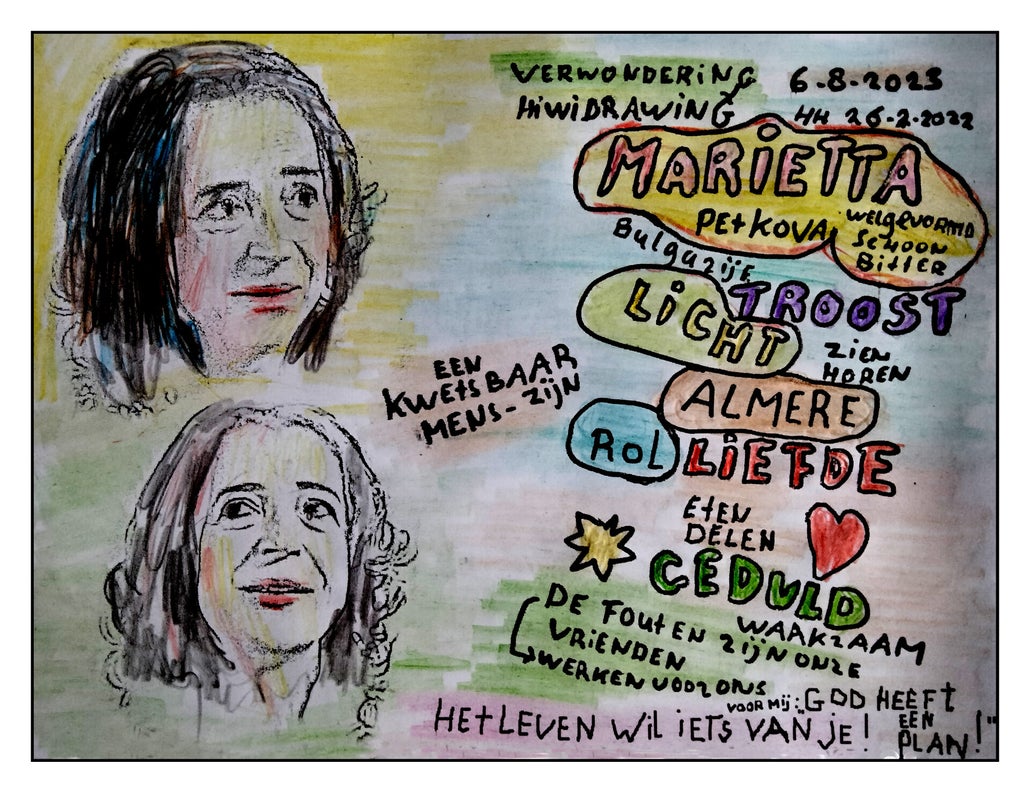 VERWONDERING 6-8-2023
HiWiDRAWING HH 26-2-2022
MARiETTA
PEtKOVA WELGEVORMD
SCHOON
BittER
BulgazijE
LiCHT TROOST
ZIEN
HOREN
EEN
KWEtSBAAR
MENS-ZijN
ALMERE
ROL LiEFDE
EtEN
DELEN
GEDULD
WAAKZAAM
DE FOUtEN ZijN ONZE
VRiENDEN
WERKEN VOOR ONS
VOOR Mij: GOD HEEFt
EEN
PLAN!"
HEt LEVEN WiL iEtS VAN jE!